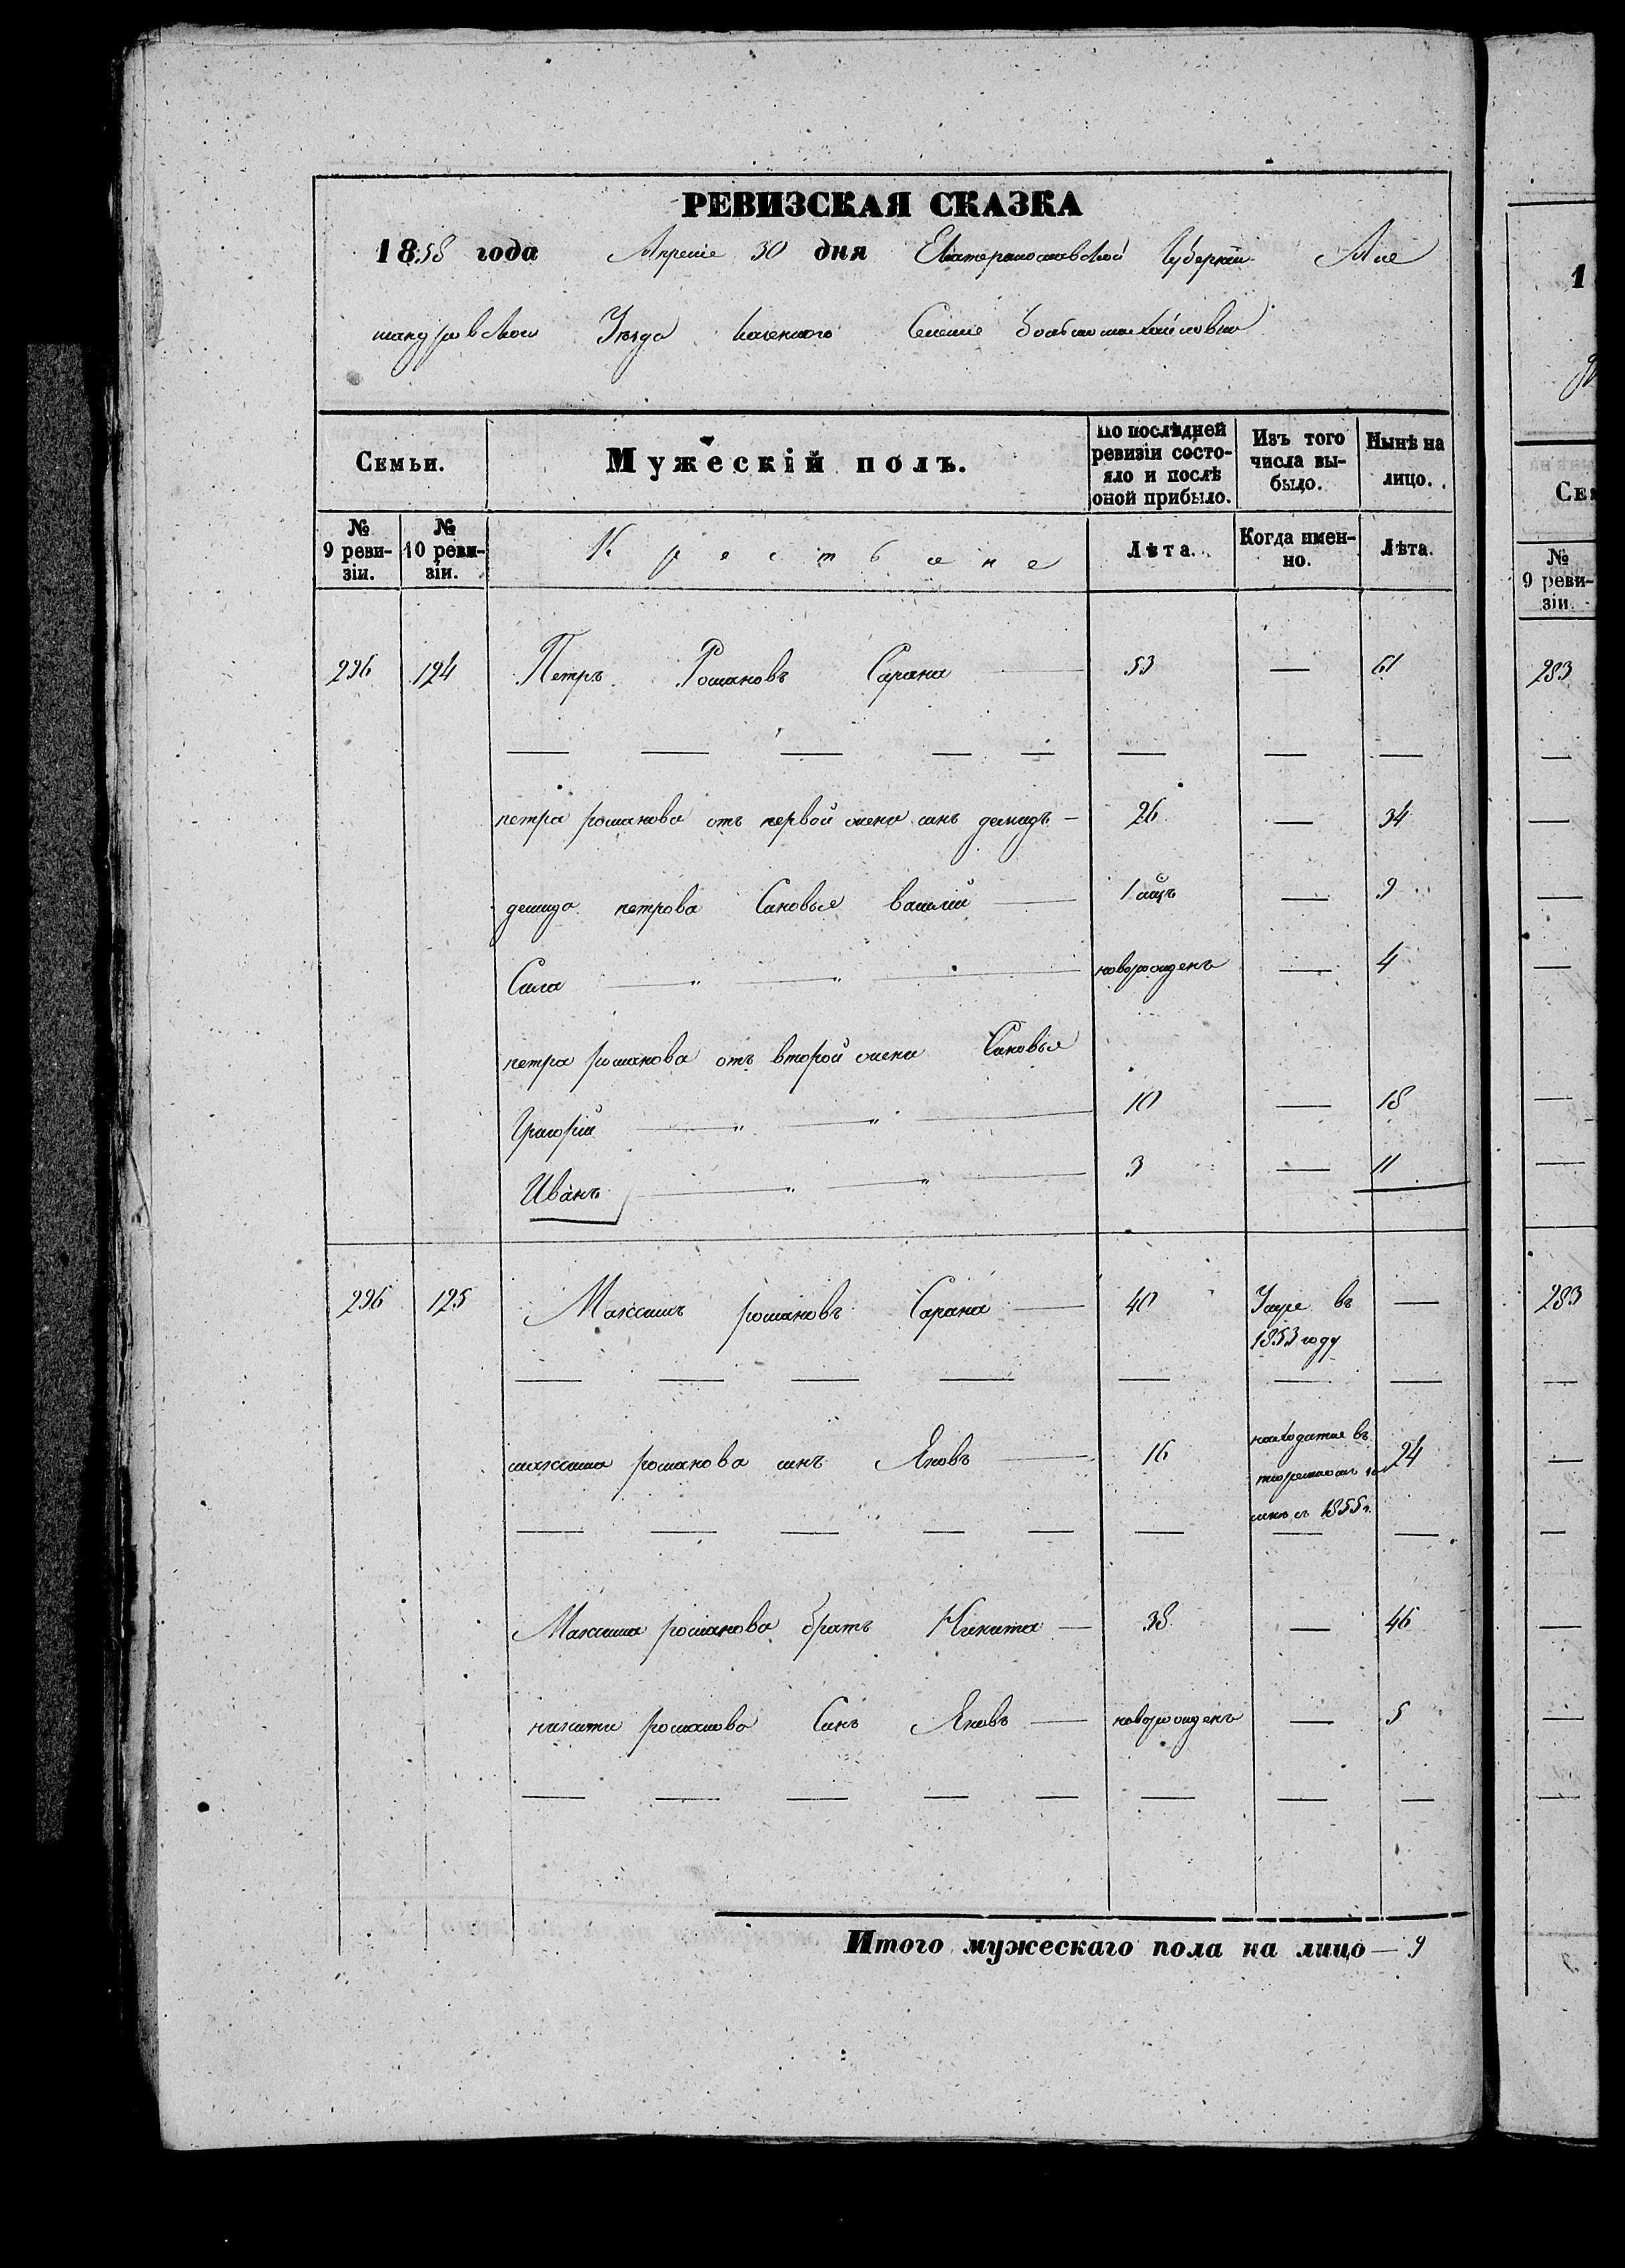 РЕВИЗСКАЯ СКАЗКА
1858 года Апреле 30 дня Екатеринославской Губернии Але
ксандровскои Уезда казенного Селение Большомихайловки
Семьи.
Мужескій полъ.
По послѣдней ревизіи состо-
яло и послѣ
оной прибыло.
Изъ того
числа вы-
было.
Нынѣ на
лицо.
№
9 реви-
зіи.
№
10 реви-
зіи.
Крестьяне
Лѣта.
Когда имен-
но.
Лѣта.
296 124 Петръ Романовъ Сарана — 53 — 61
петра романова отъ первой жени синъ демидъ — 26 — 34
демида петрова Синовья василий — 1 мцъ — 9
Сила — " — " — новорожденъ — 4
петра романова отъ второй жени Синовья
Григорий — " — " — 10 — 18
Иванъ — " — " — 3 — 11
296 125 Максимъ романовъ Сарана — 40 Умре въ —
1853 году
максима романова синъ Яковъ — 16 находитця въ 24
1855 г.
Максима романова братъ Никита — 38 — 46
никити романова Синъ Яковъ — новорожденъ — 5
Итого мужескаго пола на лицо — 9
1
Се
№
9 реви-
зіи.
283
283